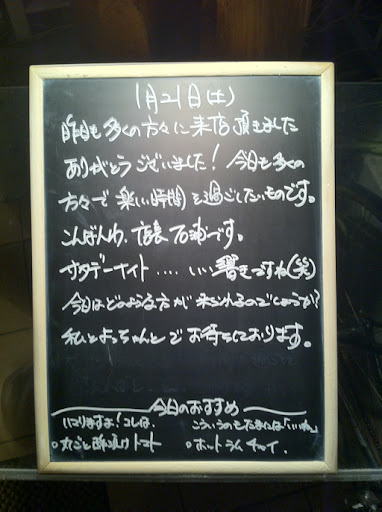 1月21日(土)
昨日も多くの方々に来店頂きました
ありがとうございました！今日も多くの
方々で楽しい時間を過ごしたいものです。
こんばんわ、店長 石浦です。
サタデーナイト‥‥いい響きですね(笑)
今日はどのような方が来られるのでしょうか？
私とよっちゃんとでお待ちしております。
今日のおすすめ
ハマりますよ！コレは、
こういうのもたまには「いいね」
○丸ごと酢漬けトマト
○ホットラムチャイ.